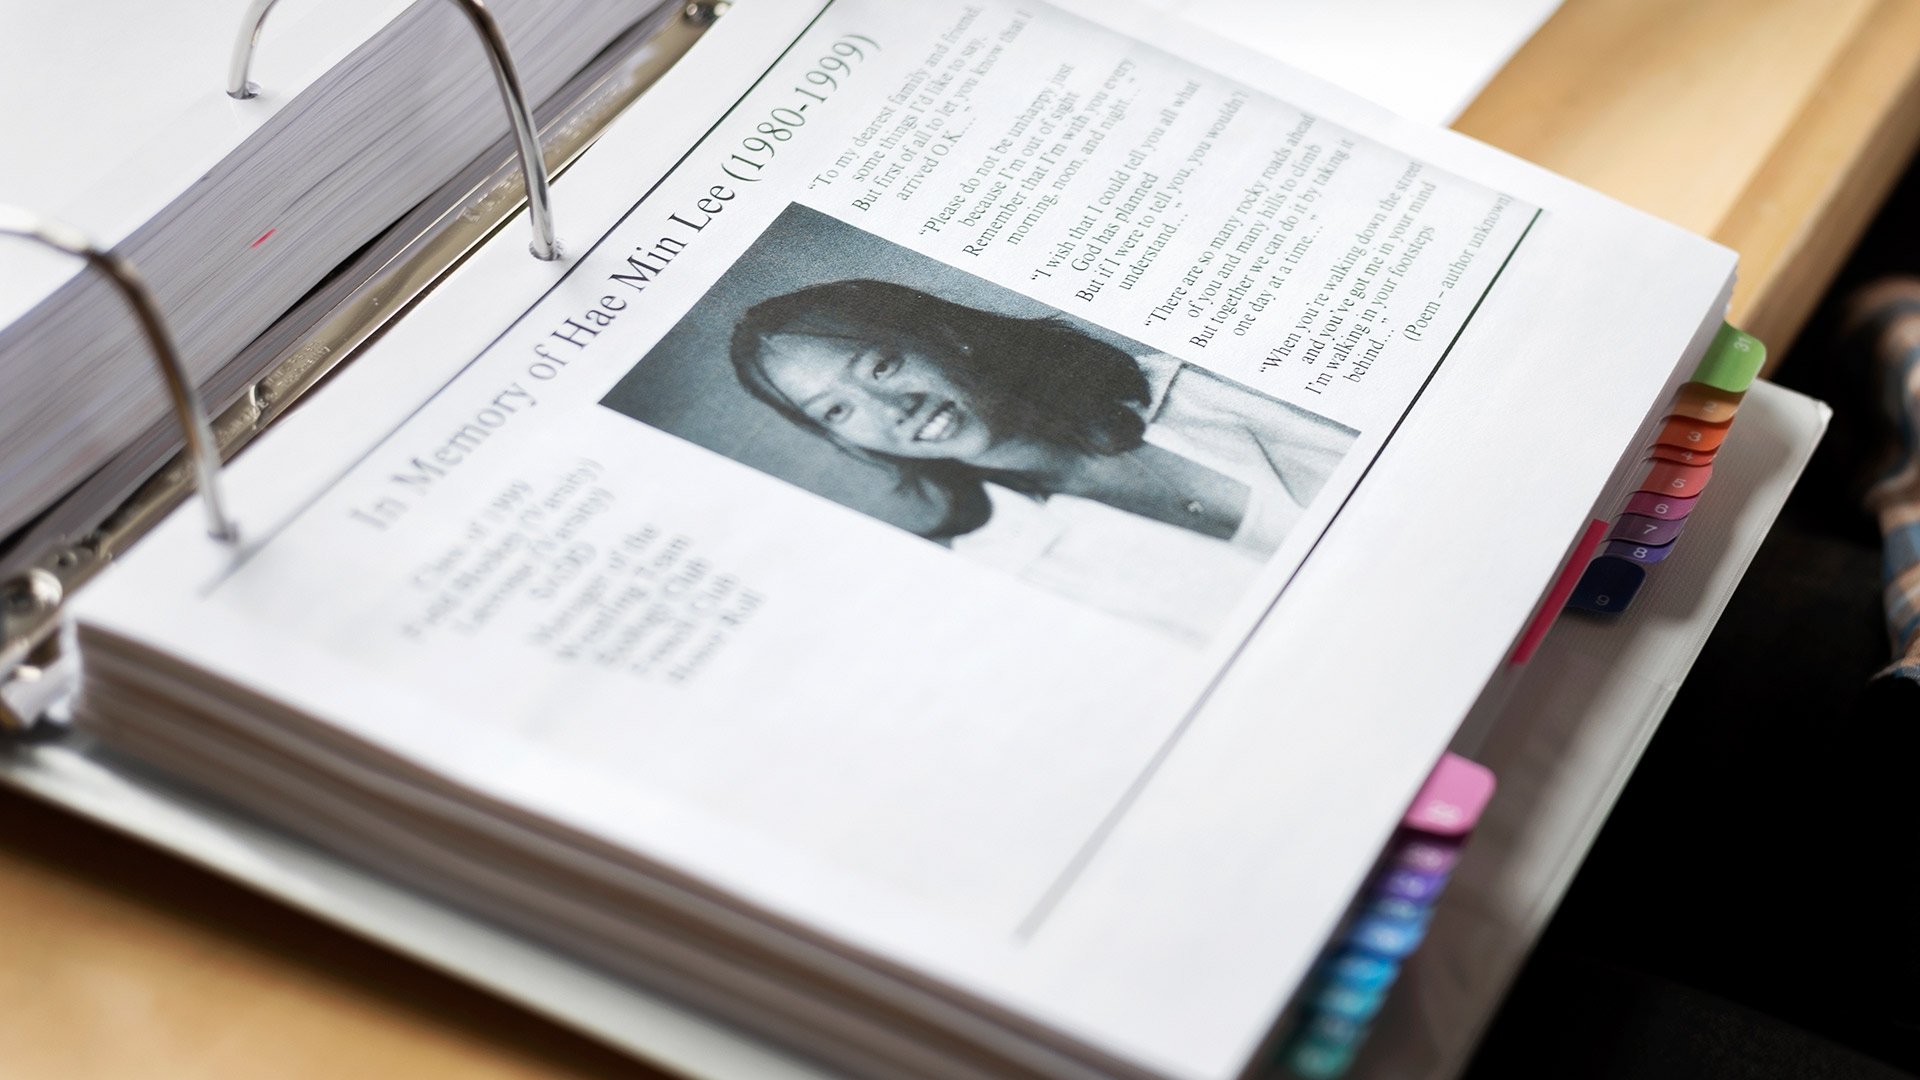 In Memory of Hae Min Lee (1980-1999)
Class of 1999
Field Hockey (Varsity)
Lacrosse (Varsity)
SADD
Manager of the
Wrestling Team
Club
French Club
Honor Roll
"To my dearest family and friend,
some things I'd like to say,
But first of all to let you know that I
arrived O.K...."
"Please do not be unhappy just
because I'm out of sight
Remember that I'm with you every
morning, noon, and night..."
"I wish that I could tell you all what
God has planned
But if I were to tell you, you wouldn't
understand..."
"There are so many rocky roads ahead
of you and many hills to climb
But together we can do it by taking it
one day at a time..."
"When you're walking down the street
and you've got me in your mind
I'm walking in your footsteps
behind..."
(Poem – author unknown)
31
3
4
5
6
7
8
9